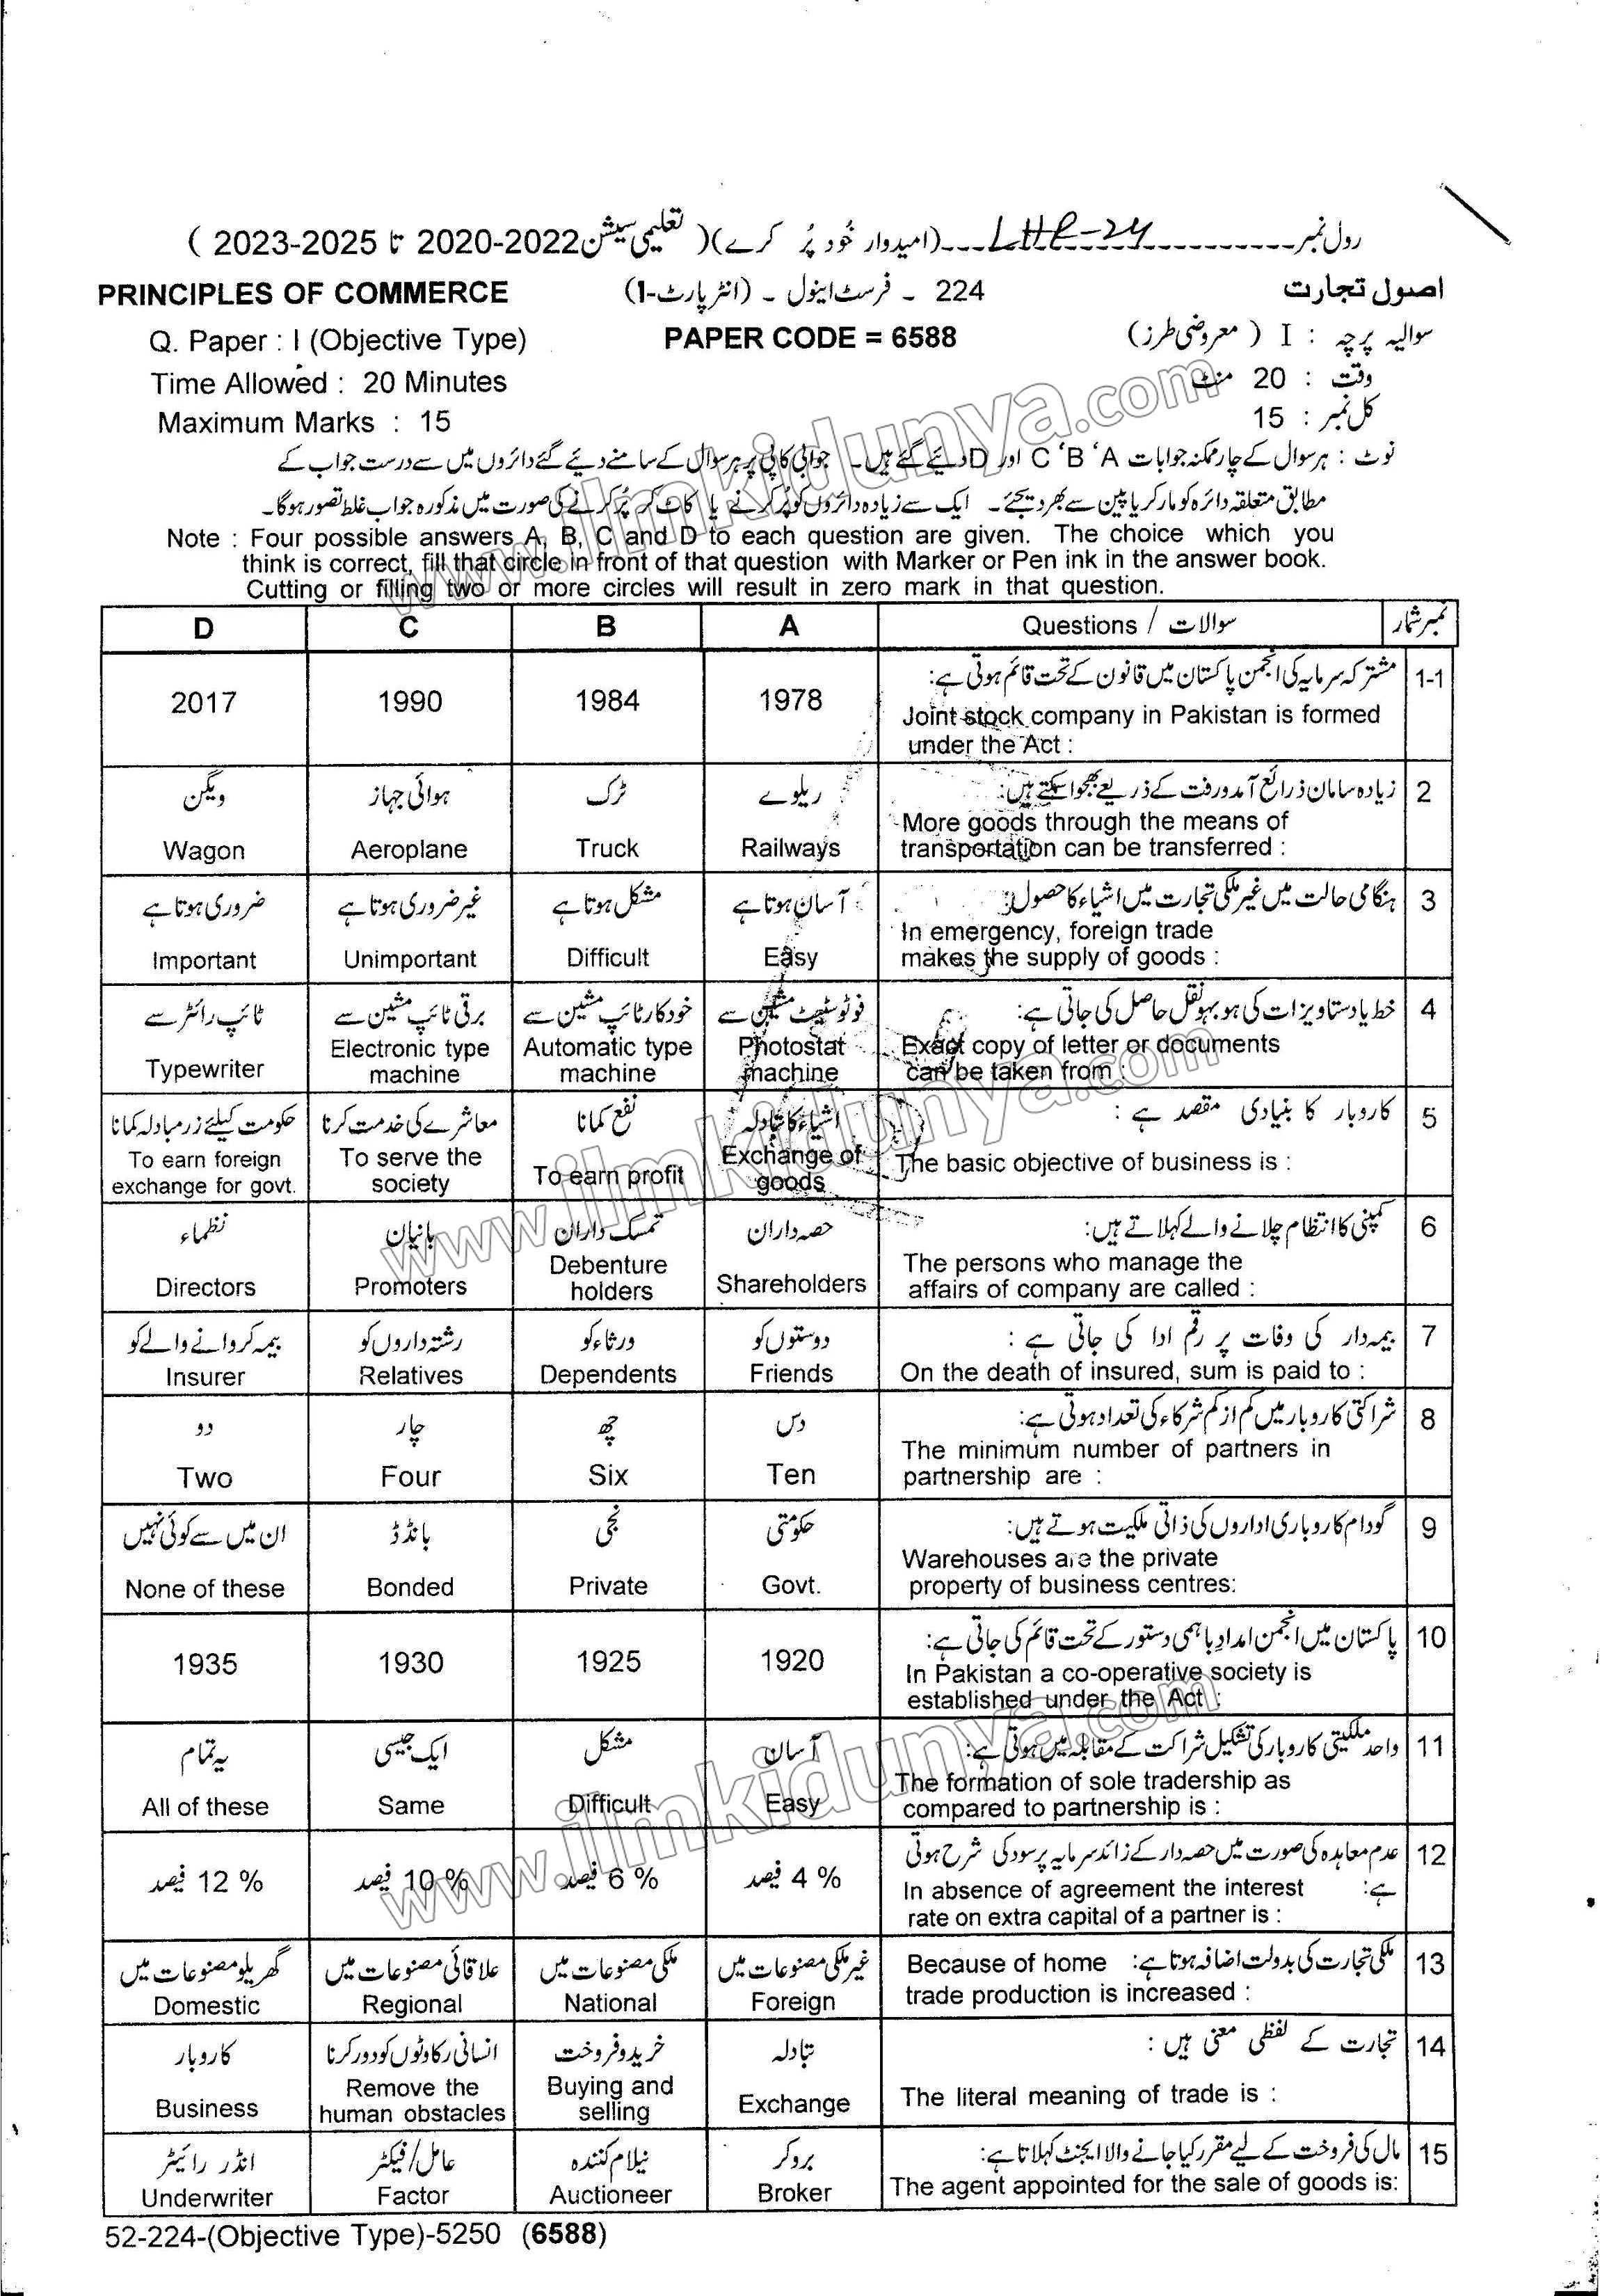 رول نمبر ------------ LHR-24 ---(امیدوار خُود پُر کرے)( تعلیمی سیشن 2020-2022 تا 2023-2025 )
PRINCIPLES OF COMMERCE 224 ۔ فرسٹ اینول ۔ (انٹر پارٹ-I) اصول تجارت
Q. Paper : I (Objective Type) PAPER CODE = 6588 سوالیہ پرچہ : I ( معروضی طرز)
Time Allowed : 20 Minutes وقت : 20 منٹ
Maximum Marks : 15 کل نمبر : 15
نوٹ : ہر سوال کے چار ممکنہ جوابات A، B، C اور D دیئے گئے ہیں ۔ جوابی کاپی پر ہر سوال کے سامنے دیئے گئے دائروں میں سے درست جواب کے
مطابق متعلقہ دائرہ کو مارکر یا پین سے بھر دیجئے ۔ ایک سے زیادہ دائروں کو پُر کرنے یا کاٹ کر پُر کرنے کی صورت میں مذکورہ جواب غلط تصور ہوگا ۔
Note : Four possible answers A, B, C and D to each question are given. The choice which you
think is correct, fill that circle in front of that question with Marker or Pen ink in the answer book.
Cutting or filling two or more circles will result in zero mark in that question.
D C B A Questions / سوالات نمبر شمار
1-1 مشترکہ سرمایہ کی انجمن پاکستان میں قانون کے تحت قائم ہوتی ہے:
Joint stock company in Pakistan is formed
under the Act :
2017 1990 1984 1978
2 زیادہ سامان ذرائع آمدورفت کے ذریعے بھجوا سکتے ہیں:
More goods through the means of
transportation can be transferred :
ویگن ہوائی جہاز ٹرک ریلوے
Wagon Aeroplane Truck Railways
3 ہنگامی حالت میں غیر ملکی تجارت میں اشیاء کا حصول:
In emergency, foreign trade
makes the supply of goods :
ضروری ہوتا ہے غیر ضروری ہوتا ہے مشکل ہوتا ہے آسان ہوتا ہے
Important Unimportant Difficult Easy
4 خط یا دستاویزات کی ہو بہو نقل حاصل کی جاتی ہے:
Exact copy of letter or documents
can be taken from :
ٹائپ رائٹر سے برقی ٹائپ مشین سے خودکار ٹائپ مشین سے فوٹوسٹیٹ مشین سے
Typewriter Electronic type machine Automatic type machine Photostat machine
5 کاروبار کا بنیادی مقصد ہے :
The basic objective of business is :
حکومت کیلئے زرمبادلہ کمانا معاشرے کی خدمت کرنا نفع کمانا اشیاء کا تبادلہ
To earn foreign exchange for govt. To serve the society To earn profit Exchange of goods
6 کمپنی کا انتظام چلانے والے کہلاتے ہیں:
The persons who manage the
affairs of company are called :
نظماء بانیان تمسک داران حصہ داران
Directors Promoters Debenture holders Shareholders
7 بیمہ دار کی وفات پر رقم ادا کی جاتی ہے :
On the death of insured, sum is paid to :
بیمہ کروانے والے کو رشتہ داروں کو ورثاء کو دوستوں کو
Insurer Relatives Dependents Friends
8 شراکتی کاروبار میں کم از کم شرکاء کی تعداد ہوتی ہے:
The minimum number of partners in
partnership are :
دو چار چھ دس
Two Four Six Ten
9 گودام کاروباری اداروں کی ذاتی ملکیت ہوتے ہیں:
Warehouses are the private
property of business centres:
ان میں سے کوئی نہیں بانڈڈ نجی حکومتی
None of these Bonded Private Govt.
10 پاکستان میں انجمن امداد باہمی دستور کے تحت قائم کی جاتی ہے:
In Pakistan a co-operative society is
established under the Act :
1935 1930 1925 1920
11 واحد ملکیتی کاروبار کی تشکیل شراکت کے مقابلہ میں ہوتی ہے:
The formation of sole tradership as
compared to partnership is :
یہ تمام ایک جیسی مشکل آسان
All of these Same Difficult Easy
12 عدم معاہدہ کی صورت میں حصہ دار کے زائد سرمایہ پر سود کی شرح ہوتی
ہے:
In absence of agreement the interest
rate on extra capital of a partner is :
12 % فیصد 10 % فیصد 6 % فیصد 4 % فیصد
13 ملکی تجارت کی بدولت اضافہ ہوتا ہے: Because of home
trade production is increased :
گھریلو مصنوعات میں علاقائی مصنوعات میں ملکی مصنوعات میں غیر ملکی مصنوعات میں
Domestic Regional National Foreign
14 تجارت کے لفظی معنی ہیں :
The literal meaning of trade is :
کاروبار انسانی رکاوٹوں کو دور کرنا خرید و فروخت تبادلہ
Business Remove the human obstacles Buying and selling Exchange
15 مال کی فروخت کے لیے مقرر کیا جانے والا ایجنٹ کہلاتا ہے:
The agent appointed for the sale of goods is:
انڈر رائیٹر عامل/فیکٹر نیلام کنندہ بروکر
Underwriter Factor Auctioneer Broker
52-224-(Objective Type)-5250 (6588)
www.ilmkidunya.com
www.ilmkidunya.com
www.ilmkidunya.com